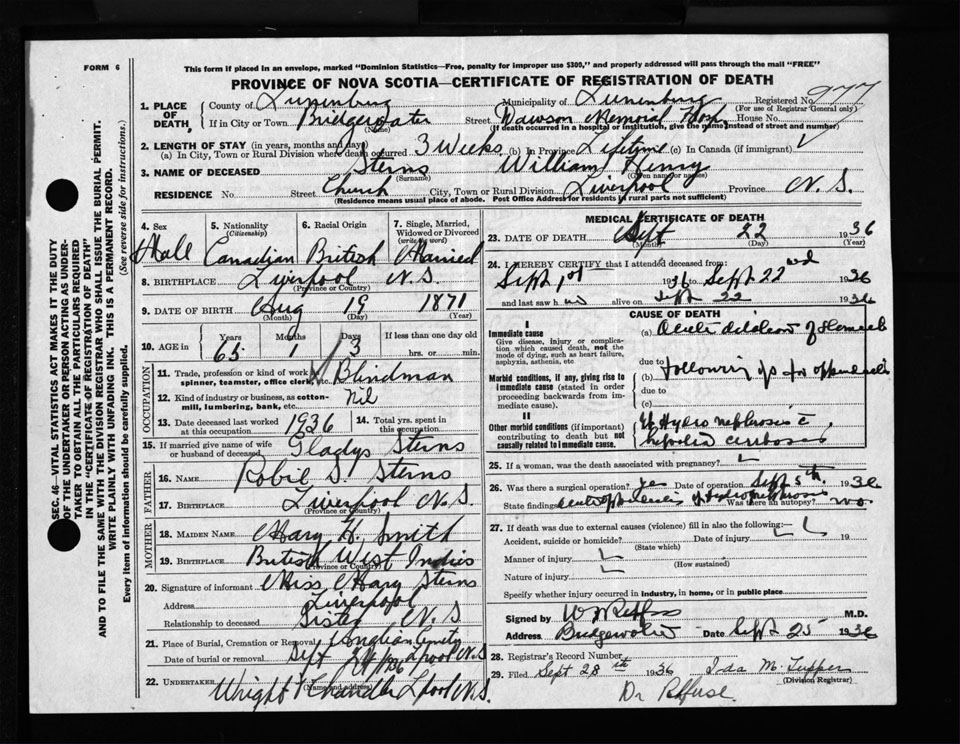 FORM 6
This form if placed in an envelope, marked "Dominion Statistics—Free, penalty for improper use $300," and properly addressed will pass through the mail "FREE"
PROVINCE OF NOVA SCOTIA—CERTIFICATE OF REGISTRATION OF DEATH
1. PLACE OF DEATH, County of Lunenburg Municipality of Lunenburg Registered No. 977 (For use of Registrar General only)
If in City or Town Bridgewater (Name) Street Dawson Memorial Hosp. House No.
(If death occurred in a hospital or institution, give the name instead of street and number)
2. LENGTH OF STAY (in years, months and days)
(a) In City, Town or Rural Division where death occurred 3 Weeks (b) In Province Lifetime (c) In Canada (if immigrant)
3. NAME OF DECEASED Sterns (Surname) William Henry (Given name or names)
RESIDENCE No. Street Church City, Town or Rural Division Liverpool Province N. S.
(Residence means usual place of abode. Post Office Address for residents in rural parts not sufficient)
4. Sex Male
5. Nationality (Citizenship) Canadian
6. Racial Origin British
7. Single, Married, Widowed or Divorced (write the word) Married
8. BIRTHPLACE Liverpool N.S. (Province or Country)
9. DATE OF BIRTH Aug (Month) 19 (Day) 1871 (Year)
10. AGE in Years 65 Months 1 Days 3 If less than one day old hrs. or min.
OCCUPATION
11. Trade, profession or kind of work as spinner, teamster, office clerk, etc. Blindman
12. Kind of industry or business, as cotton-mill, lumbering, bank, etc. Nil
13. Date deceased last worked at this occupation 1936
14. Total yrs. spent in this occupation
15. If married give name of wife or husband of deceased Gladys Sterns
FATHER
16. NAME Robie S. Sterns
17. BIRTHPLACE Liverpool N.S. (Province or Country)
MOTHER
18. MAIDEN NAME Mary H. Smith
19. BIRTHPLACE British West Indies (Province or Country)
20. Signature of informant Miss Mary Sterns
Address Liverpool N.S
Relationship to deceased Sister
21. Place of Burial, Cremation or Removal Anglican Cemetery
Date of burial or removal Sept 24 1936 Lpool N.S
22. UNDERTAKER Wright Chandler Lpool N.S. (Name and address)
MEDICAL CERTIFICATE OF DEATH
23. DATE OF DEATH Sept (Month) 22 (Day) 1936 (Year)
24. I HEREBY CERTIFY that I attended deceased from:
Sept 1st 1936 to Sept 22nd 1936
and last saw him alive on Sept 22 1936
CAUSE OF DEATH
I
Immediate cause
Give disease, injury or complication which caused death, not the mode of dying, such as heart failure, asphyxia, asthenia, etc
(a) Acute dilatation of Stomach
due to
Morbid conditions, if any, giving rise to immediate cause (stated in order proceeding backwards from immediate cause).
(b) following op for appendicitis
due to
(c)
II
Other morbid conditions (if important) contributing to death but not causally related to immediate cause.
Hydronephrosis c̄
cirrhosis
25. If a woman, was the death associated with pregnancy?
26. Was there a surgical operation? yes Date of operation Sept 5th 1936
State findings Hydronephrosis Was there an autopsy? no
27. If death was due to external causes (violence) fill in also the following:
Accident, suicide or homicide? (State which) Date of injury 19
Manner of injury (How sustained)
Nature of injury
Specify whether injury occurred in industry, in home, or in public place
Signed by M.D.
Address Bridgewater Date Sept 25 1936
28. Registrar's Record Number
29. Filed Sept 28th 1936 Ida M. Tupper (Division Registrar)
Dr Rehfuse
SEC. 46—VITAL STATISTICS ACT MAKES IT THE DUTY
OF THE UNDERTAKER OR PERSON ACTING AS UNDER-
TAKER TO OBTAIN ALL THE PARTICULARS REQUIRED
IN THE "CERTIFICATE OF REGISTRATION OF DEATH"
AND TO FILE THE SAME WITH THE DIVISION REGISTRAR WHO SHALL ISSUE THE BURIAL PERMIT.
WRITE PLAINLY WITH UNFADING INK. THIS IS A PERMANENT RECORD.
Every item of information should be carefully supplied. (See reverse side for instructions.)